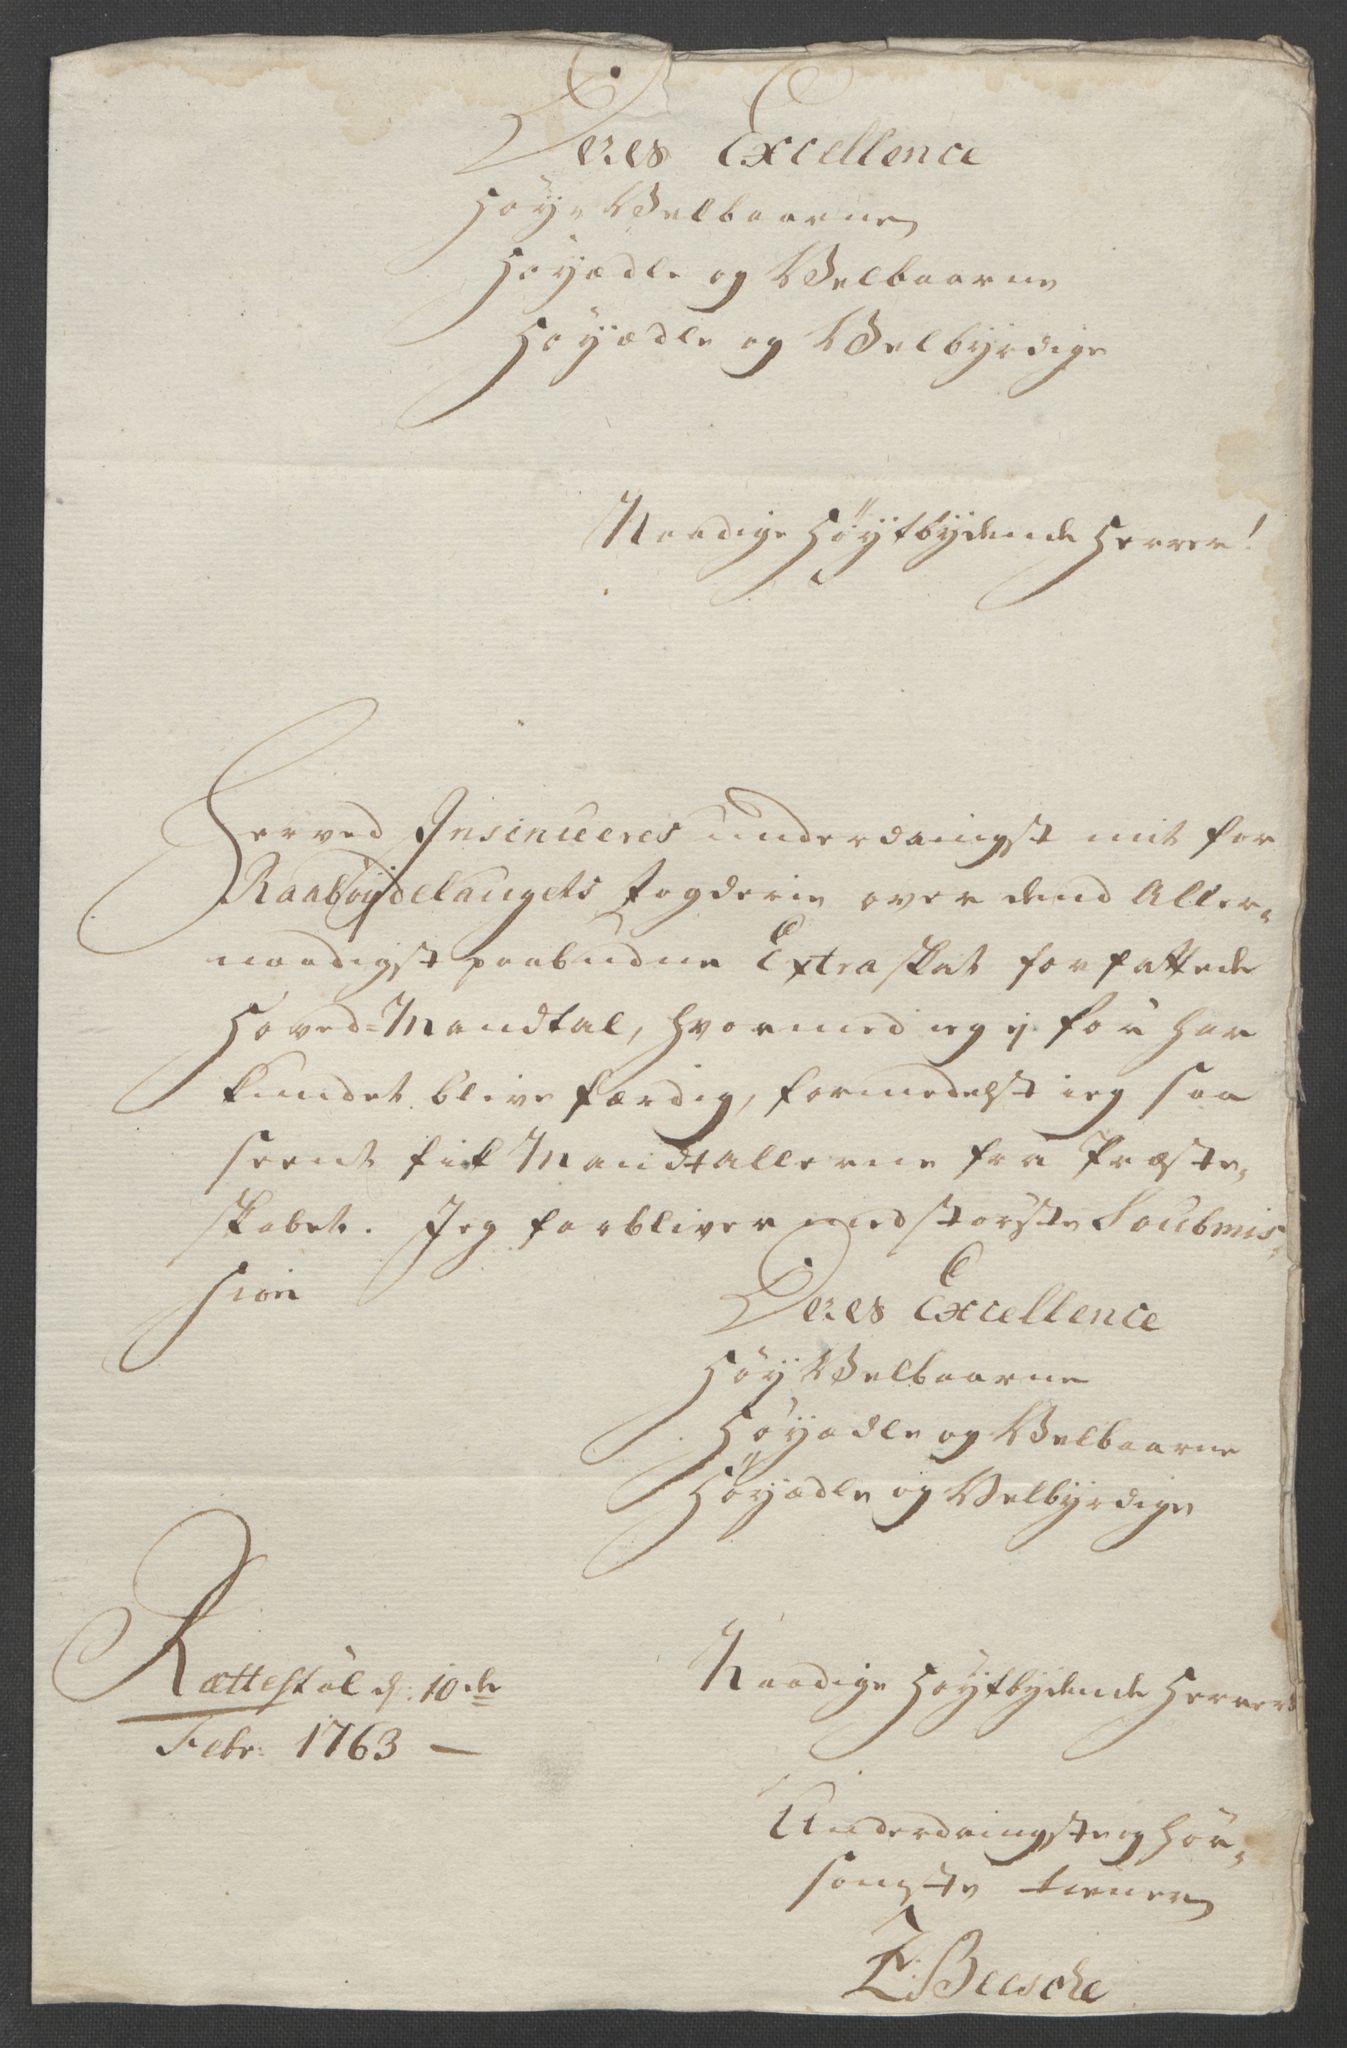 Deres Excellence
Høy Velbaarne
Høyædle og Velbaarne
Høyædle og Velbyrdige
Naadige Høytbydende Herrer!
Herved Insinueres underdanigst mit for
Raabøydelaugets fogderie over dend Aller-
naadigst paabudne Extraskat forfattede
Hoved-Mandtal, hvormed ieg ej før har
kundet blive færdig, formedelst ieg saa
seent fik Mandtallerne fra Præste-
skabet. Jeg forbliver med største Soubmis-
sion
Deres Excellence
Høy Velbaarne
Høyædle og Velbaarne
Høyædle og Velbyrdige
Rættestøl d: 10de
Febr: 1763 —
Naadige Høytbydende Herrers
Underdanigste og hør-
somste tiener
Z: Beesche